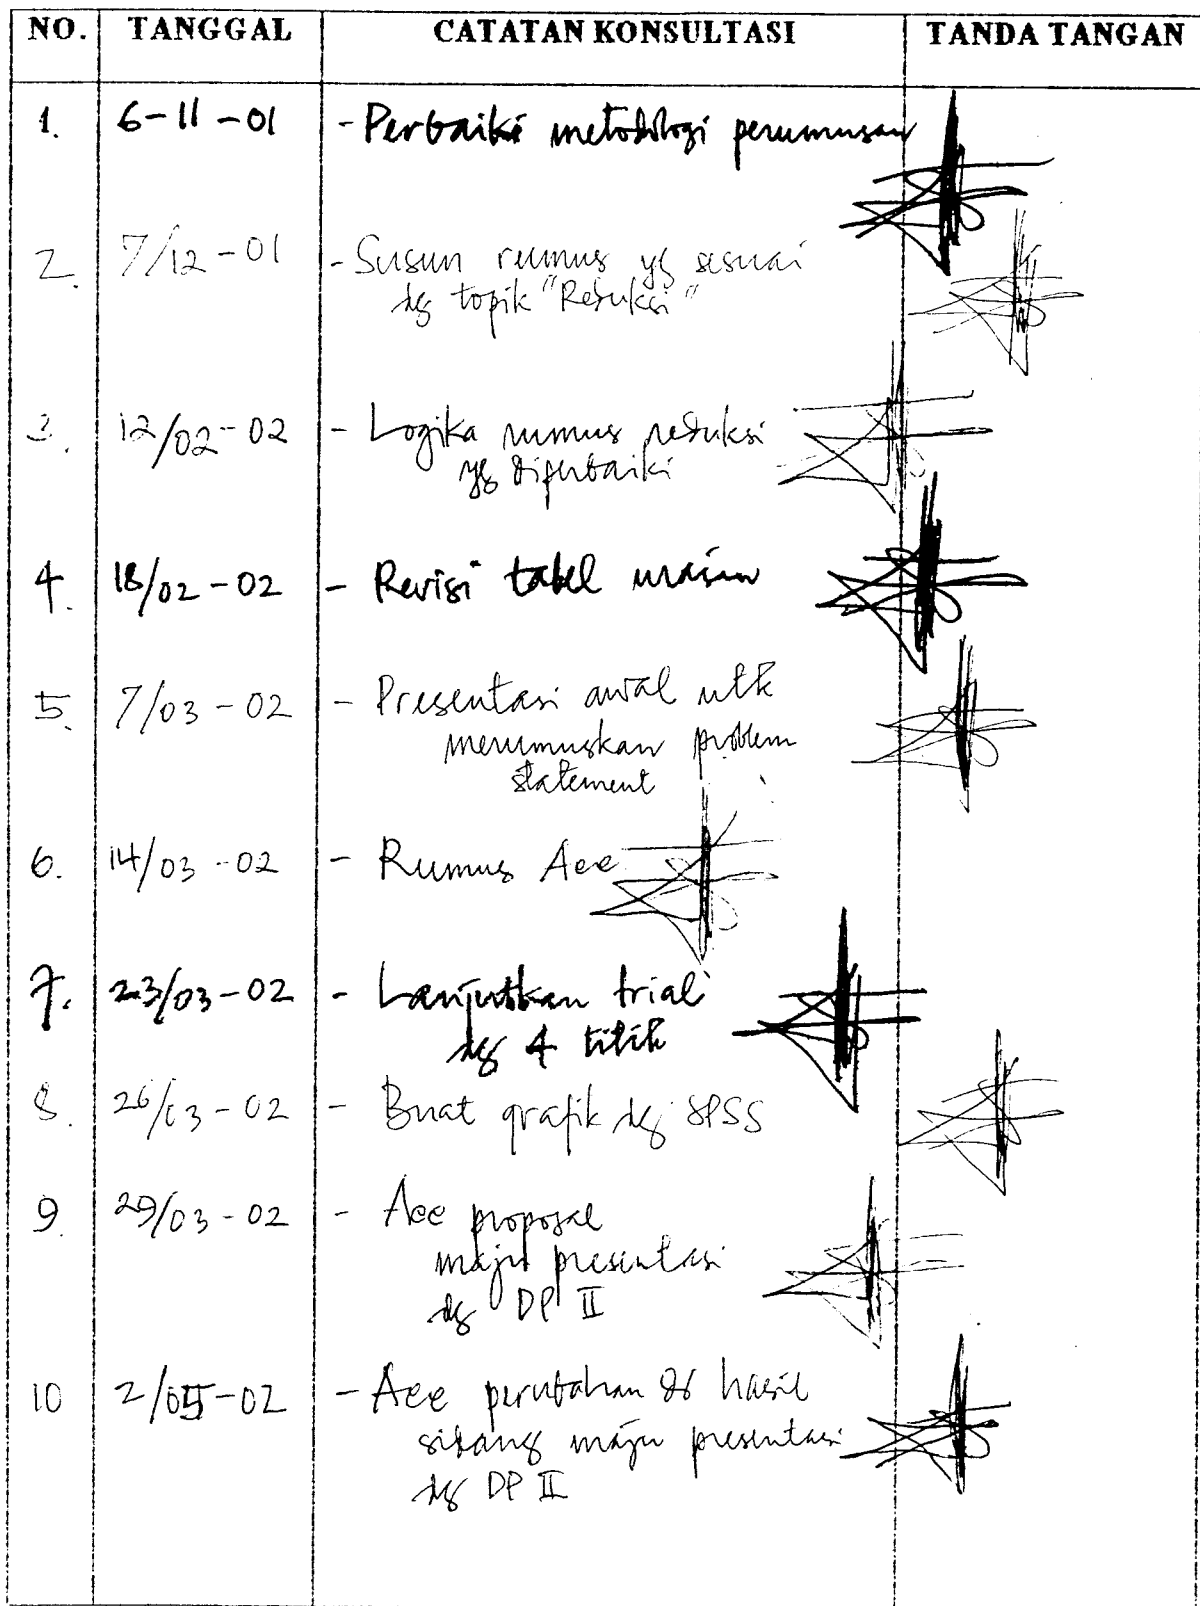 NO. TANGGAL CATATAN KONSULTASI TANDA TANGAN
1. 6-11-01 - Perbaiki metodologi perumusan
2. 7/12-01 - Susun rumus yg sesuai
dg topik "Reduksi"
3. 12/02-02 - Logika rumus reduksi
yg diperbaiki
4. 18/02-02 - Revisi tabel
5. 7/03-02 - Presentasi awal utk
merumuskan problem
statement
6. 14/03-02 - Rumus Acc
7. 23/03-02 - Lanjutkan trial
dg 4 titik
8. 26/03-02 - Buat grafik dg SPSS
9. 29/03-02 - Acc proposal
maju presentasi
dg DP II
10 2/05-02 - Acc perubahan hasil
sidang maju presentasi
dg DP II